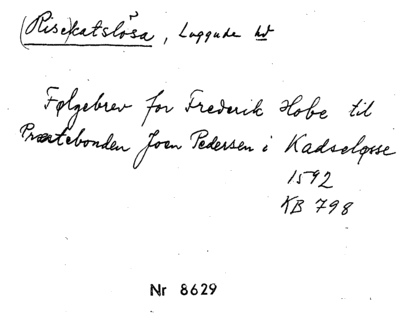 (Rise)katslösa, Luggude hd
Følgebrev for Frederik Hobe til
Præstebonden Joen Pedersen i Kadseløsse
1592
KB 798
Nr 8629